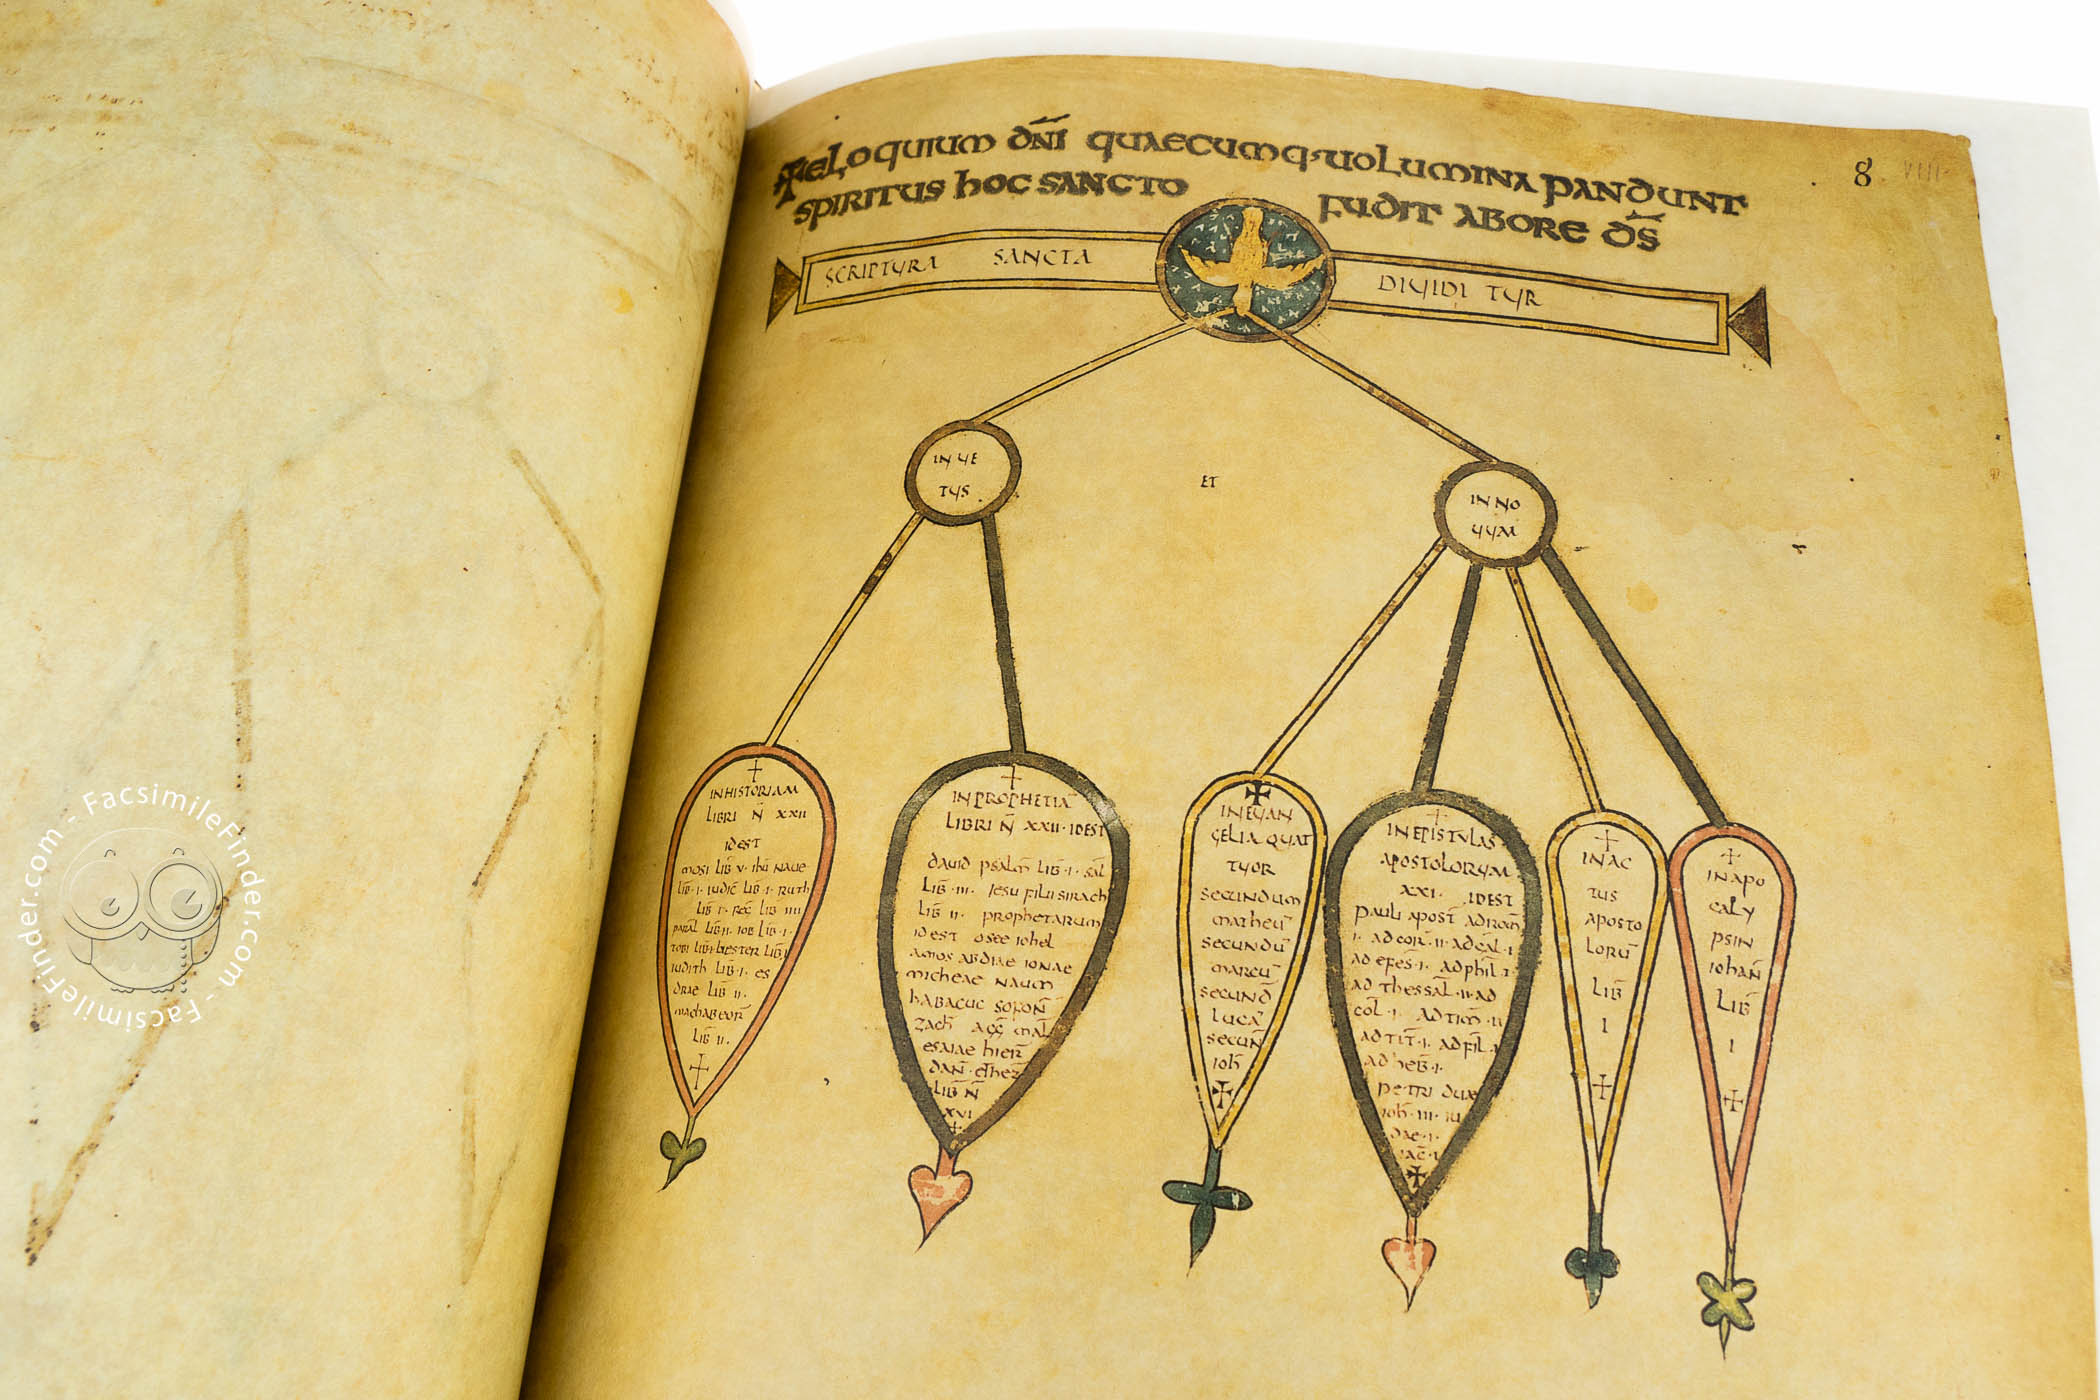 ELOQUIUM DN̄I QUAECUMQ· UOLUMINA PANDUNT
SPIRITUS HOC SANCTO FUDIT ABORE DS̄
8 VIIII
SCRIPTURA SANCTA DIUIDITUR
IN UE
TUS
ET
IN NO
UUM
IN HISTORIAM
LIBRI N̄ XXII
IDEST
MOSI LIB̄ V· IHU NAUE
LIB̄ · I· IUDIC̄ LIB̄ · I· RUTH
LIB̄ I · REḠ LIB̄ IIII
PARAL̄ LIB̄ II· IOB LIB̄ · I·
TOBI LIB̄ I· HESTER LIB̄ I
IUDITH LIB̄ · I· ES
DRAE LIB̄ II·
MACHABEOR̄
LIB̄ II·
IN PROPHETIĀ
LIBRI N̄ XXII· IDEST
DAUID PSALM̄ LIB̄ · I· SAL̄
LIB̄ · III· IESU FILII SIRACH
LIB̄ II· PROPHETARUM
IDEST OSEE IOHEL
AMOS ABDIAE IONAE
MICHEAE NAUM
HABACUC SOFON̄
ZACH̄ AGḠ MAL̄
ESAIAE HIER̄
DAN̄ · ETHEZ̄
LIB̄ N̄
XVI
IN EUAN
GELIA QUAT
TUOR
SECUNDUM
MATHEŪ
SECUNDŪ
MARCŪ
SECUND̄
LUCĀ
SECUN̄
IOH̄
IN EPISTULAS
APOSTOLORUM
XXI· IDEST
PAULI APOST̄ AD ROM̄
I· AD COR̄ · II· AD GAL̄ · I·
AD EFES· I· AD PHIL̄ · I·
AD THESSAL̄ · II· AD
COL̄ · I· AD TIM̄ · II
AD TIT̄ · I· AD FIL̄ · I·
AD HEB̄ · I·
PETRI DUAE
IOH̄ · III· IU
DAE · I·
IAC̄ · I
IN AC
TUS
APOSTO
LORŪ
LIB̄
I
IN APO
CALY
PSIN
IOHAN̄
LIB̄
I
FacsimileFinder.com - FacsimileFinder.com - FacsimileFinder.com